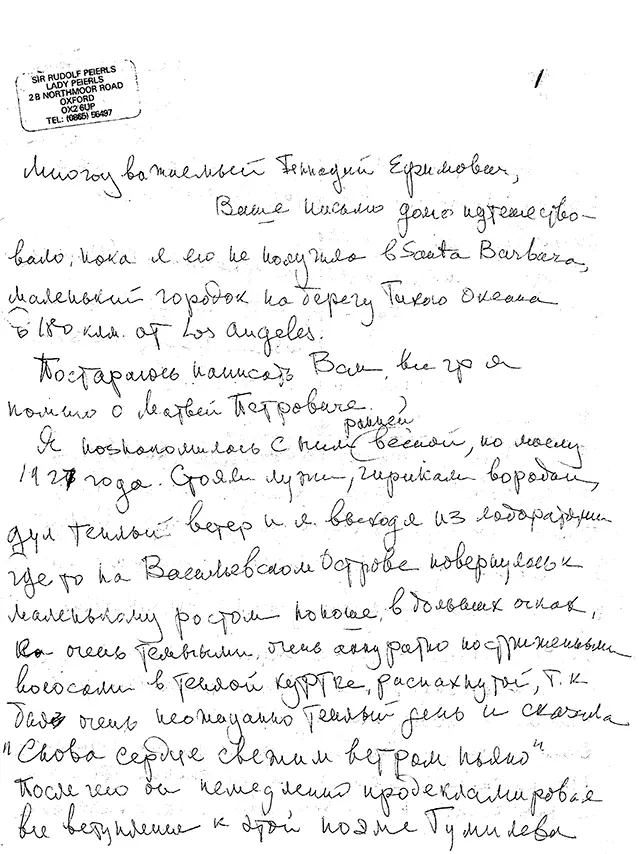 SIR RUDOLF PEIERLS
LADY PEIERLS
2B NORTHMOOR ROAD
OXFORD
OX2 6UP
TEL: (0865) 56497
1
Многоуважаемый Геннадий Ефимович,
Ваше письмо долго путешество-
вало, пока я его не получила в Santa Barbara,
маленький городок на берегу Тихого Океана
в 180 клм. от Los Angeles.
Постараюсь написать Вам, все что я
помню о Матвей Петровиче.
Я познакомилась с ним ранней весной, по моему
1927 года. Стояли лужи, чирикали воробьи,
дул теплый ветер и я выходя из лаборатории
где то на Васильевском Острове повернулась к
маленькому ростом юноше, в больших очках,
с очень темными, очень аккуратно постриженными
волосами в теплой куртке, распахнутой, т.к
был очень неожиданно теплый день и сказала
"Снова сердце свежим ветром пьяно"
После чего он немедленно продекламировал
все вступление к этой поэме Гумилева